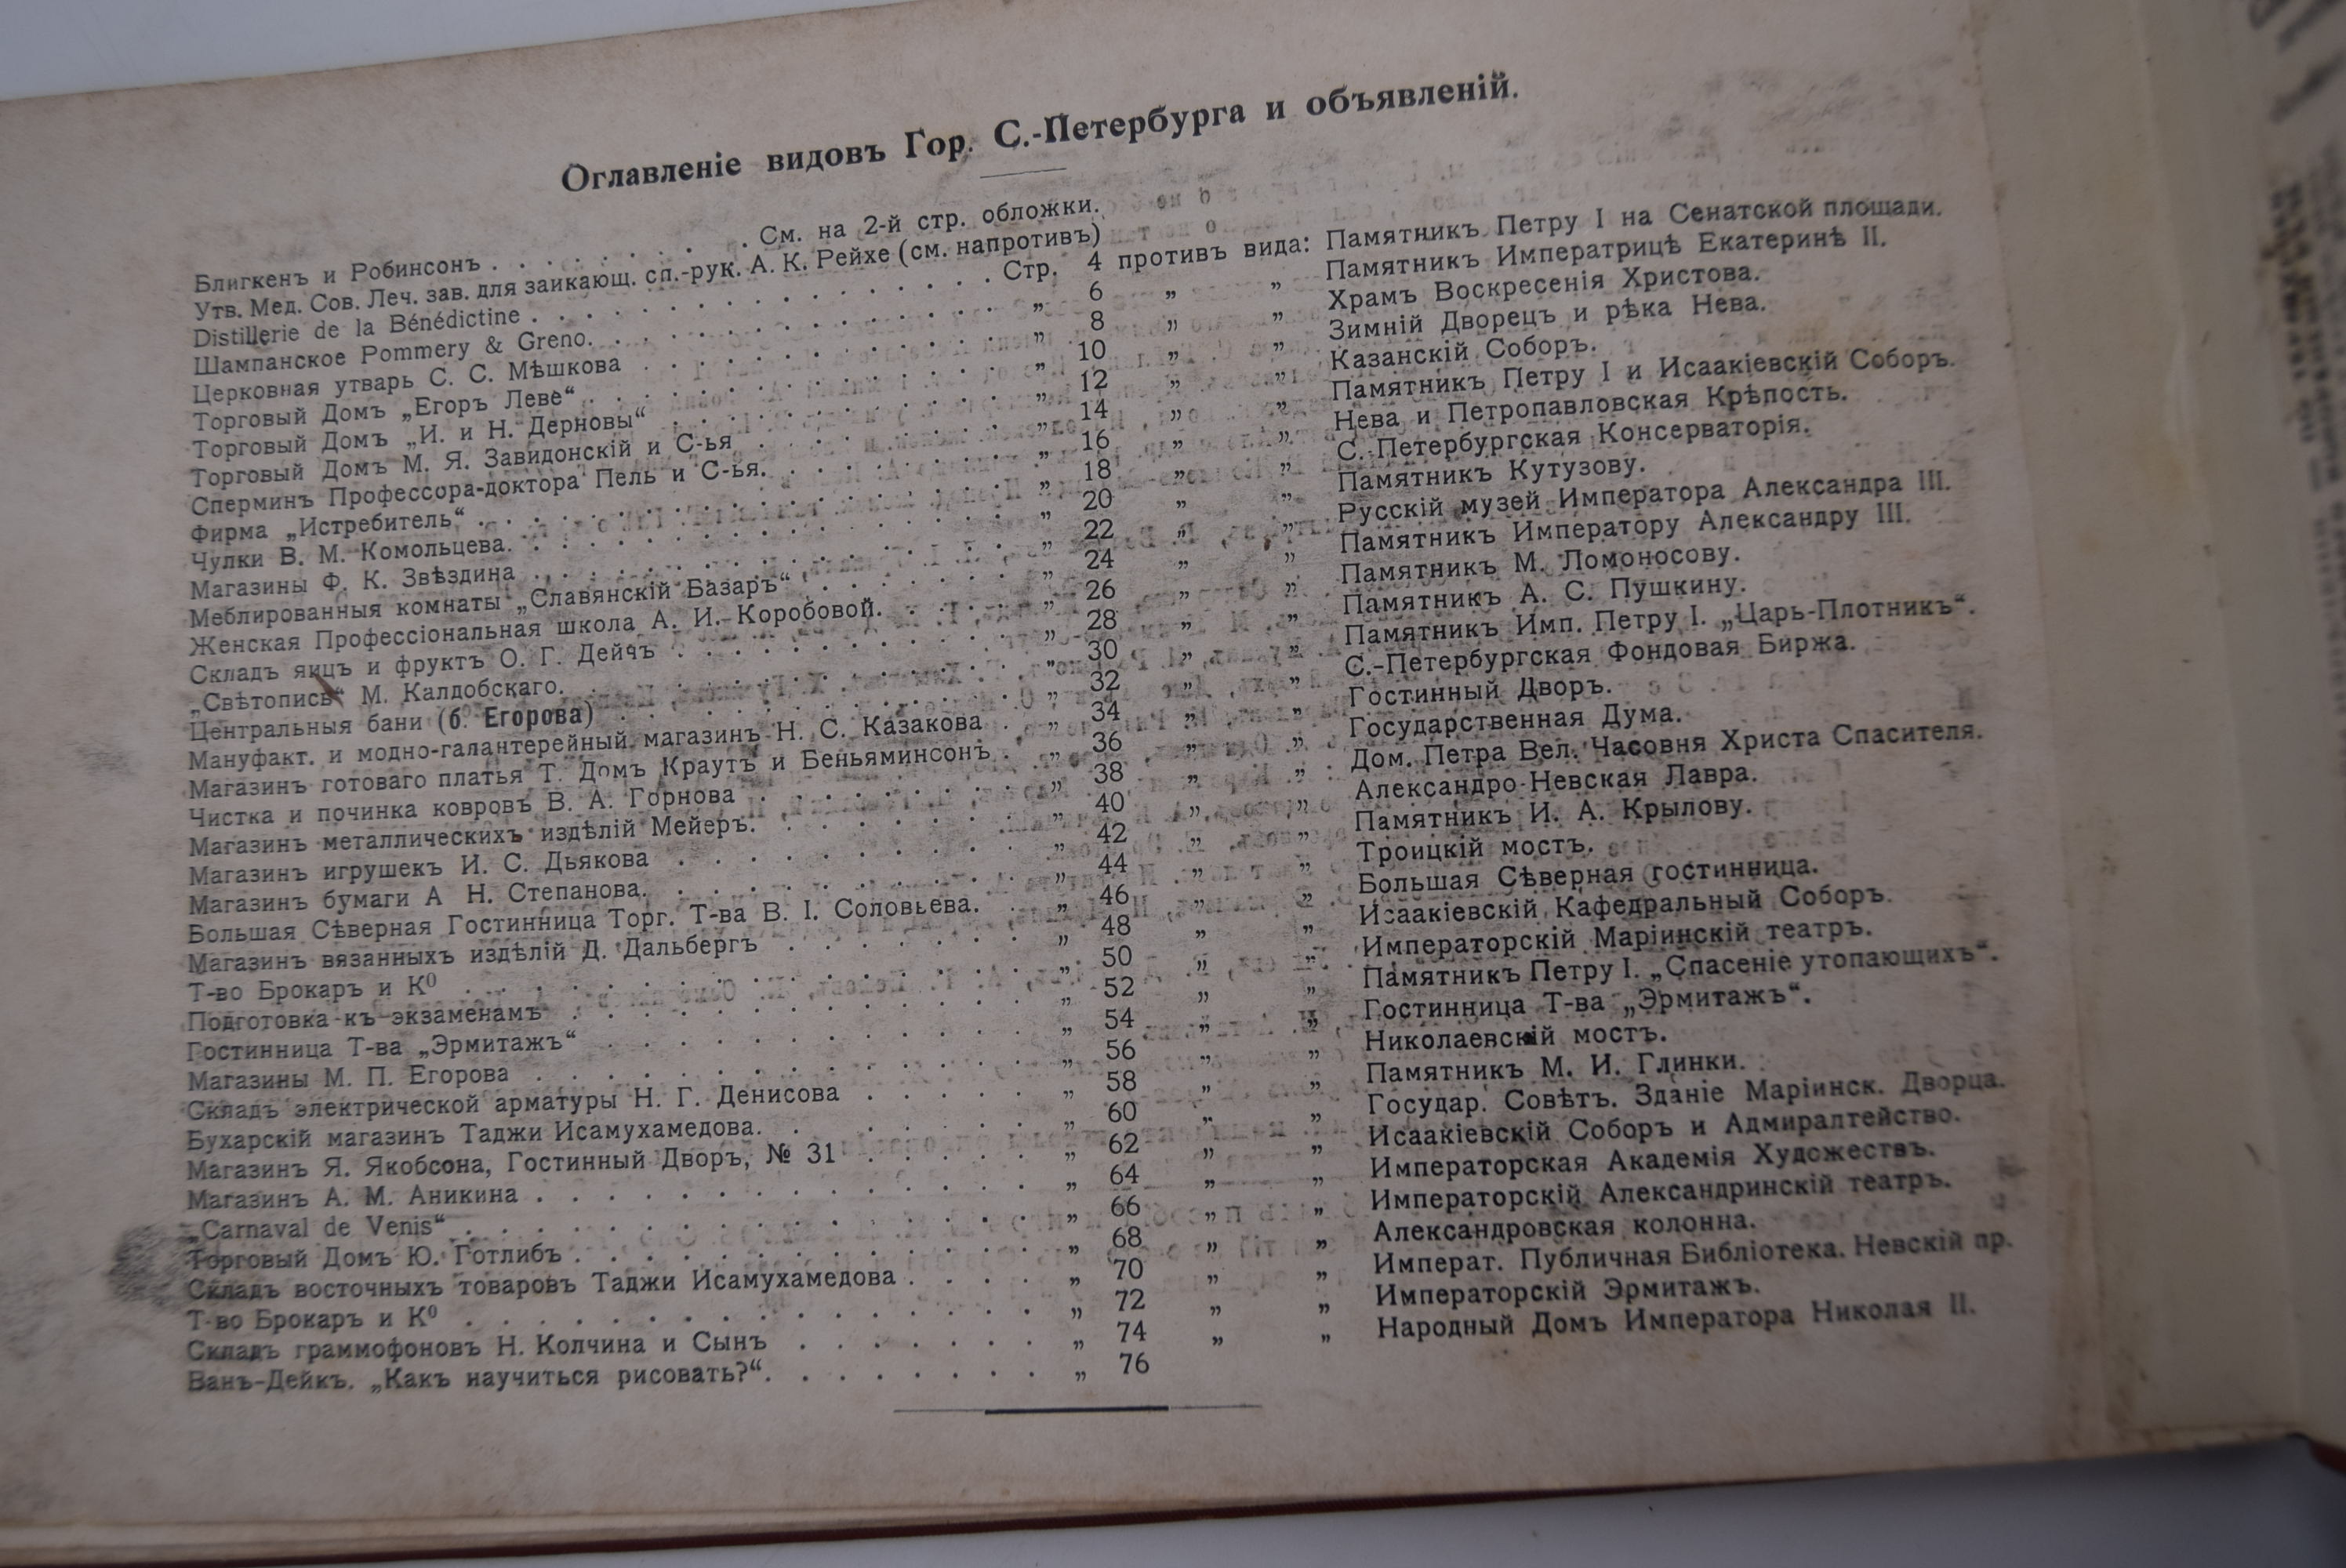 Оглавленіе видовъ Гор. С.-Петербурга и объявленій.
Блигкенъ и Робинсонъ . . . . . . . . См. на 2-й стр. обложки.
Утв. Мед. Сов. Леч. зав. для заикающ. сп.-рук. А. К. Рейхе (см. напротивъ)
Distillerie de la Bénédictine . . . . . . . . Стр. 4 противъ вида: Памятникъ Петру I на Сенатской площади.
Шампанское Pommery & Greno. . . . . . . . „ 6 „ „ Памятникъ Императрицѣ Екатеринѣ II.
Церковная утварь С. С. Мѣшкова . . . . . . . . „ 8 „ „ Храмъ Воскресенія Христова.
Торговый Домъ „Егоръ Леве“ . . . . . . . . „ 10 „ „ Зимній Дворецъ и рѣка Нева.
Торговый Домъ „И. и Н. Дерновы“ . . . . . . . . „ 12 „ „ Казанскій Соборъ.
Торговый Домъ М. Я. Завидонскій и С-ья . . . . . . . . „ 14 „ „ Памятникъ Петру I и Исаакіевскій Соборъ.
Сперминъ Профессора-доктора Пель и С-ья. . . . . . . . „ 16 „ „ Нева и Петропавловская Крѣпость.
Фирма „Истребитель“ . . . . . . . . „ 18 „ „ С.-Петербургская Консерваторія.
Чулки В. М. Комольцева. . . . . . . . „ 20 „ „ Памятникъ Кутузову.
Магазины Ф. К. Звѣздина . . . . . . . . „ 22 „ „ Русскій музей Императора Александра III.
Меблированныя комнаты „Славянскій Базаръ“ . . . . . . „ 24 „ „ Памятникъ Императору Александру III.
Женская Профессіональная школа А. И. Коробовой. . . . . „ 26 „ „ Памятникъ М. Ломоносову.
Складъ яицъ и фруктъ О. Г. Дейчъ . . . . . . . . „ 28 „ „ Памятникъ А. С. Пушкину.
„Свѣтопись“ М. Калдобскаго. . . . . . . . „ 30 „ „ Памятникъ Имп. Петру I. „Царь-Плотникъ“.
Центральныя бани (б. Егорова) . . . . . . . . „ 32 „ „ С.-Петербургская Фондовая Биржа.
Мануфакт. и модно-галантерейный магазинъ Н. С. Казакова . . „ 34 „ „ Гостинный Дворъ.
Магазинъ готоваго платья Т. Домъ Краутъ и Беньяминсонъ . . „ 36 „ „ Государственная Дума.
Чистка и починка ковровъ В. А. Горнова . . . . . . . . „ 38 „ „ Дом. Петра Вел. Часовня Христа Спасителя.
Магазинъ металлическихъ издѣлій Мейеръ. . . . . . . . „ 40 „ „ Александро-Невская Лавра.
Магазинъ игрушекъ И. С. Дьякова . . . . . . . . „ 42 „ „ Памятникъ И. А. Крылову.
Магазинъ бумаги А Н. Степанова. . . . . . . . „ 44 „ „ Троицкій мостъ.
Большая Сѣверная Гостинница Торг. Т-ва В. І. Соловьева. . . „ 46 „ „ Большая Сѣверная гостинница.
Магазинъ вязанныхъ издѣлій Д. Дальбергъ . . . . . . . . „ 48 „ „ Исаакіевскій Кафедральный Соборъ.
Т-во Брокаръ и К⁰ . . . . . . . . „ 50 „ „ Императорскій Маріинскій театръ.
Подготовка къ экзаменамъ . . . . . . . . „ 52 „ „ Памятникъ Петру I. „Спасеніе утопающихъ“.
Гостинница Т-ва „Эрмитажъ“ . . . . . . . . „ 54 „ „ Гостинница Т-ва „Эрмитажъ“.
Магазины М. П. Егорова . . . . . . . . „ 56 „ „ Николаевскій мостъ.
Складъ электрической арматуры Н. Г. Денисова . . . . . . „ 58 „ „ Памятникъ М. И. Глинки.
Бухарскій магазинъ Таджи Исамухамедова. . . . . . . „ 60 „ „ Государ. Совѣтъ. Зданіе Маріинск. Дворца.
Магазинъ Я. Якобсона, Гостинный Дворъ, № 31 . . . . . . „ 62 „ „ Исаакіевскій Соборъ и Адмиралтейство.
Магазинъ А. М. Аникина . . . . . . . . „ 64 „ „ Императорская Академія Художествъ.
„Carnaval de Venis“ . . . . . . . . „ 66 „ „ Императорскій Александринскій театръ.
Торговый Домъ Ю. Готлибъ . . . . . . . . „ 68 „ „ Александровская колонна.
Складъ восточныхъ товаровъ Таджи Исамухамедова . . . . „ 70 „ „ Императ. Публичная Библіотека. Невскій пр.
Т-во Брокаръ и К⁰ . . . . . . . . „ 72 „ „ Императорскій Эрмитажъ.
Складъ граммофоновъ Н. Колчина и Сынъ . . . . . . . „ 74 „ „ Народный Домъ Императора Николая II.
Ванъ-Дейкъ. „Какъ научиться рисовать?“. . . . . . . . „ 76